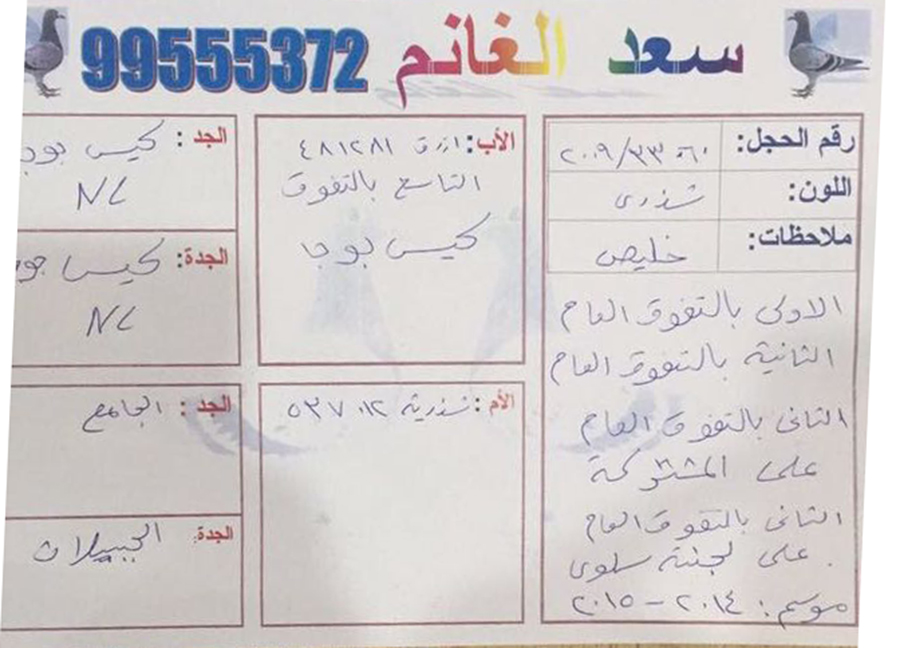 سعد الغانم 99555372
رقم الحجل: ٢٠٠٩/٣٣٠٦٠
اللون: شذرى
ملاحظات: خليص
الاولى بالتفوق العام
الثانية بالتفوق العام
الثانى بالتفوق العام
على المشتركة
الثانى بالتفوق العام
على لجنة سلوى
موسم: ٢٠١٤ - ٢٠١٥
الأب: ازرق ٤٨١٢٨١
التاسع بالتفوق
كيس بوجا
الأم: شذرية ٥٣٧٠١٢
الجد: كيس
NL
الجدة: كيس
NL
الجد: الجامع
الجدة: الجبيلات